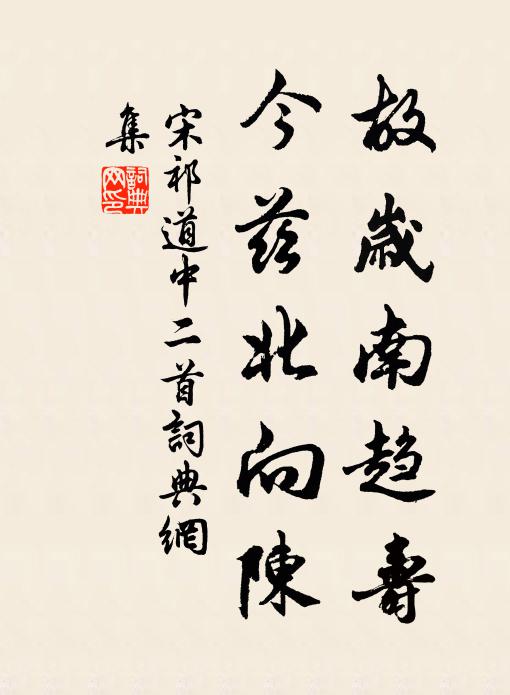 故歲南趨壽
今茲北向陳
宋祁道中二首詞典網
集
詞典
网印